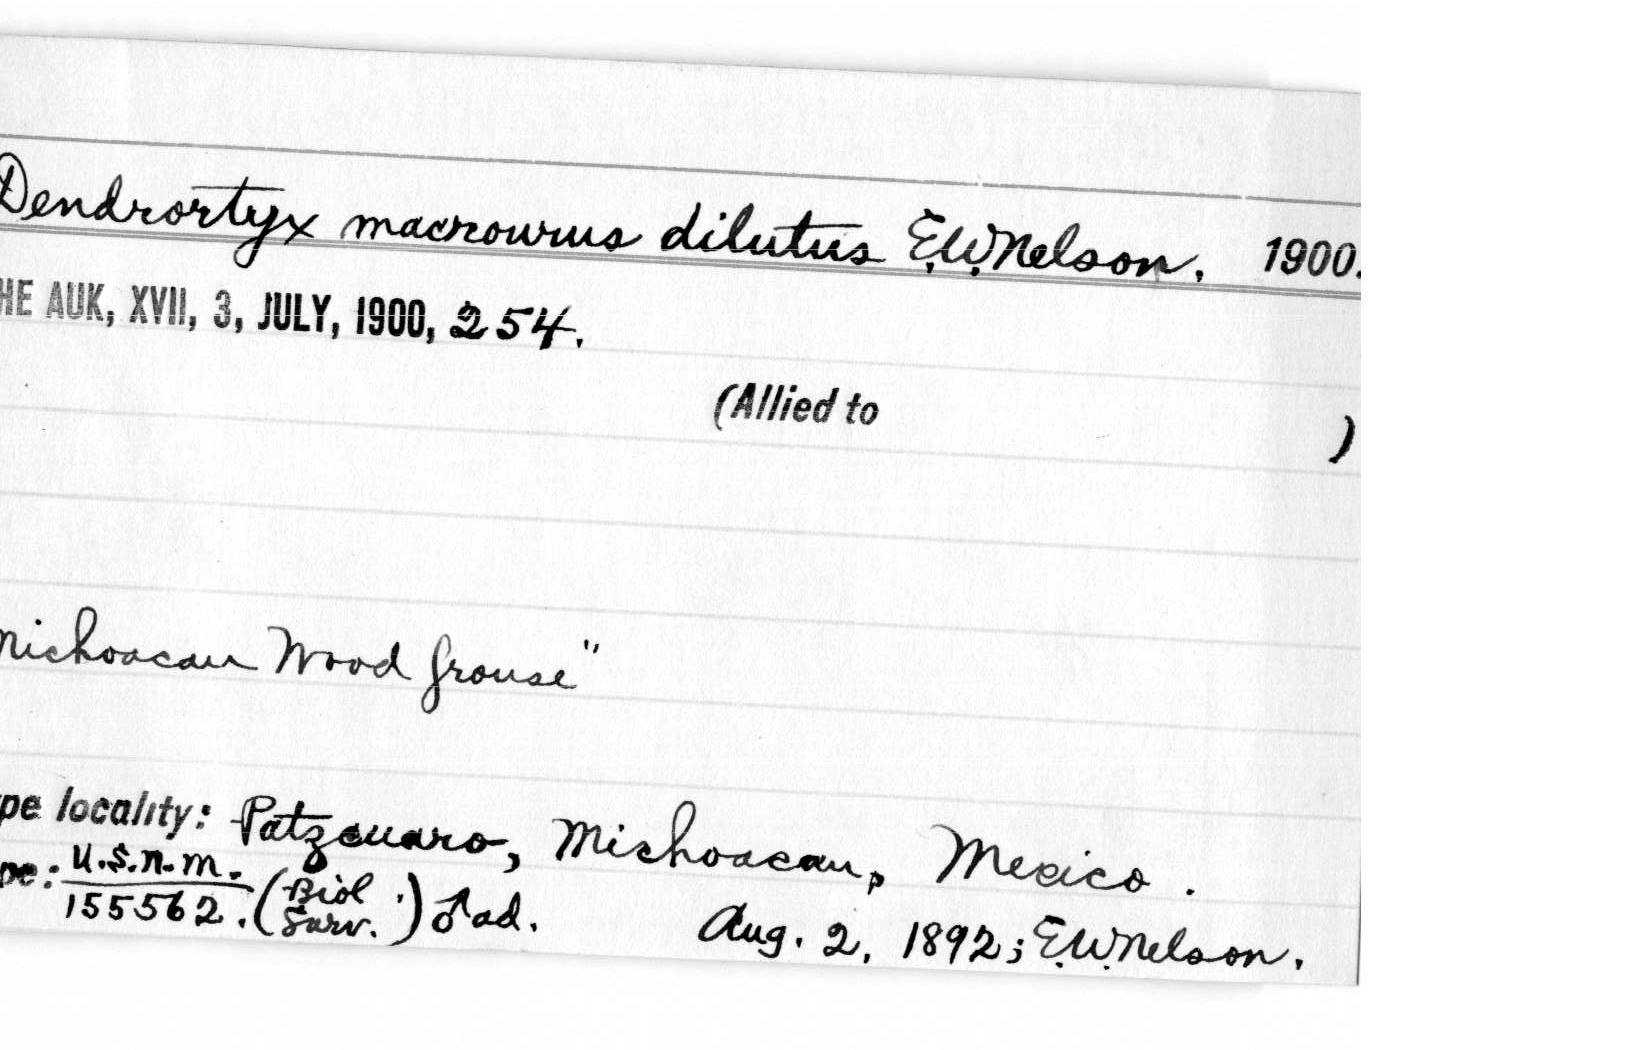 Dendrortyx macrourus dilutus E.W.Nelson, 1900.
HE AUK, XVII, 3, JULY, 1900, 254.
(Allied to )
Michoacan Wood grouse"
pe locality: Patzcuaro, Michoacan, Mexico.
pe: U.S.N.M. 155562. (Biol. Surv.) ♂ ad. Aug. 2, 1892; E.W.Nelson.